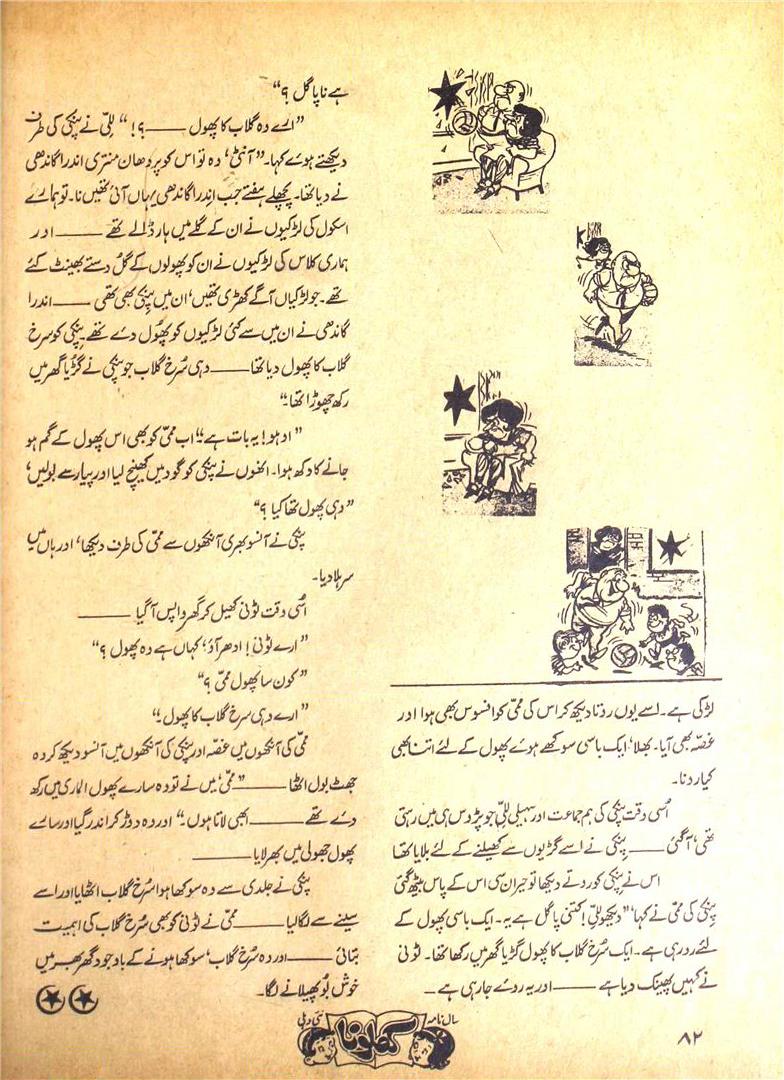 لڑکی ہے۔ اسے یوں روتا دیکھ کر اس کی ممّی کو افسوس بھی ہوا اور
غصّہ بھی آیا۔ بھلا، ایک باسی سوکھے ہوئے پھول کے لئے اتنا بھی
کیا رونا۔
اُسی وقت پِنکی کی ہم جماعت اور سہیلی لِلّی جو پڑوس ہی میں رہتی
تھی، آ گئی ــــــ پِنکی نے اسے گڑیوں سے کھیلنے کے لئے بلایا تھا
اس نے پِنکی کو روتے دیکھا تو حیران سی اس کے پاس بیٹھ گئی
پِنکی کی ممّی نے کہا، ”دیکھو لِلّی! کتنی پاگل ہے یہ۔ ایک باسی پھول کے
لئے رو رہی ہے۔ ایک سُرخ گلاب کا پھول گڑیا گھر میں رکھا تھا۔ ٹونی
نے کہیں پھینک دیا ہے ــــــ اور یہ روئے جا رہی ہے ۔
ہے نا پاگل ؟“
”ارے وہ گلاب کا پھول ــــــ ؟!“ لِلّی نے پِنکی کی طرف
دیکھتے ہوئے کہا۔ ”آنٹی، وہ تو اس کو پردھان منتری اندرا گاندھی
نے دیا تھا۔ پچھلے ہفتے جب اندرا گاندھی یہاں آئی تھیں نا۔ تو ہمارے
اسکول کی لڑکیوں نے ان کے گلے میں ہار ڈالے تھے ــــــ اور
ہماری کلاس کی لڑکیوں نے ان کو پھولوں کے گُل دستے بھینٹ کئے
تھے۔ جو لڑکیاں آگے کھڑی تھیں، ان میں پِنکی بھی تھی ــــــ اندرا
گاندھی نے ان میں سے کئی لڑکیوں کو پھُول دے تھے پِنکی کو سرخ
گلاب کا پھول دیا تھا ــــــ وہی سُرخ گلاب جو پنکی نے گڑیا گھر میں
رکھ چھوڑا تھا۔“
”اوہو! یہ بات ہے“ اب ممّی کو بھی اس پھول کے گم ہو
جانے کا دکھ ہوا۔ انھوں نے پنکی کو گود میں کھینچ لیا اور پیار سے بولیں،
”وہی پھول تھا کیا ؟“
پنکی نے آنسو بھری آنکھوں سے ممّی کی طرف دیکھا، اور ہاں میں
سر ہلا دیا۔
اُسی وقت ٹونی کھیل کر گھر واپس آ گیا ــــــ
”ارے ٹونی! ادھر آؤ، کہاں ہے وہ پھول ؟“
”کون سا پھول ممّی ؟“
”ارے وہی سرخ گلاب کا پھول۔“
ممّی کی آنکھوں میں غصّہ اور پِنکی کی آنکھوں میں آنسو دیکھ کر وہ
جھٹ بول اٹھا ــــــ ”ممّی، میں نے تو وہ سارے پھول الماری میں رکھ
دے تھے ــــــ ابھی لاتا ہوں۔“ اور وہ دوڑ کر اندر گیا اور سارے
پھول جھولی میں بھر لایا ــــــ
پنکی نے جلدی سے وہ سوکھا ہوا سُرخ گلاب اٹھایا اور اسے
سینے سے لگا لیا ــــــ ممّی نے ٹونی کو بھی سُرخ گلاب کی اہمیت
بتائی ــــــ اور وہ سُرخ گلاب، سوکھا ہونے کے باوجود گھر بھر میں
خوش بُو پھیلانے لگا۔
سال نامہ کھلونا نئی دہلی
۸۲